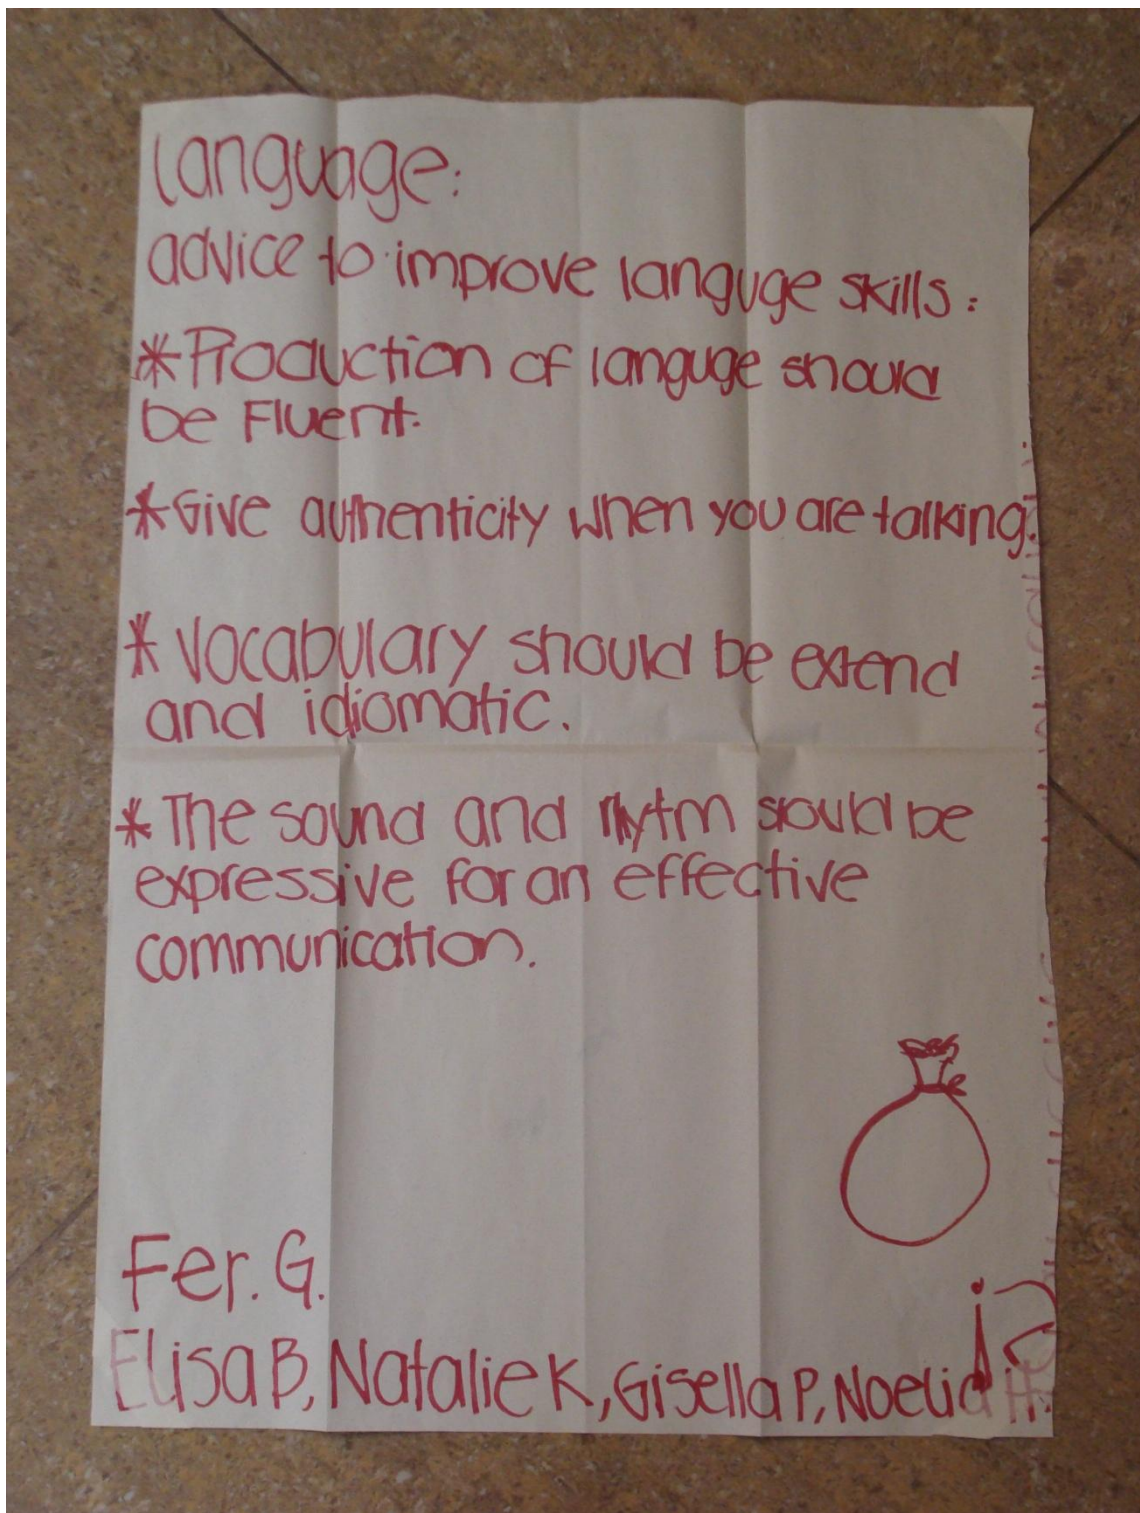 Language:
advice to improve languge skills:
*Production of languge should
be Fluent.
*Give authenticity when you are talking.
*Vocabulary should be extend
and idiomatic.
*The sound and rhytm should be
expressive for an effective
communication.
Fer. G.
Elisa B, Natalie K, Gisella P, Noelia H.